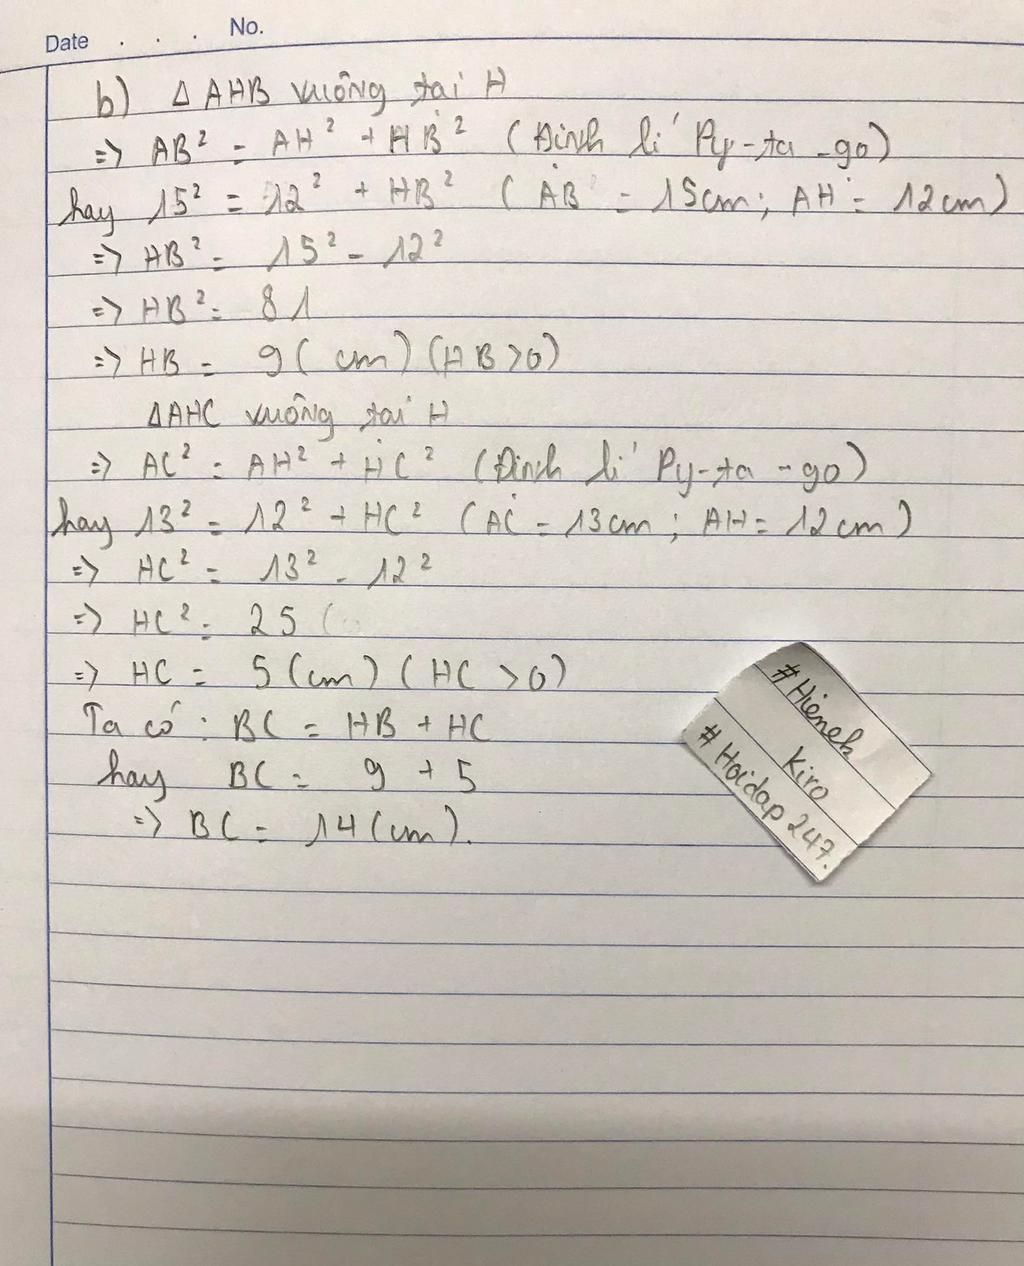 Date . . . No.
b) Δ AHB vuông tại H
=> AB² = AH² + HB² (Định lí Py-ta-go)
hay 15² = 12² + HB² (AB = 15cm; AH = 12cm)
=> HB² = 15² - 12²
=> HB² = 81
=> HB = 9 (cm) (HB > 0)
ΔAHC vuông tại H
=> AC² = AH² + HC² (Định lí Py-ta-go)
hay 13² = 12² + HC² (AC = 13cm; AH = 12cm)
=> HC² = 13² - 12²
=> HC² = 25
=> HC = 5 (cm) (HC > 0)
Ta có: BC = HB + HC
hay BC = 9 + 5
=> BC = 14 (cm).
#Hienek
Kiro
#Hoidap247.